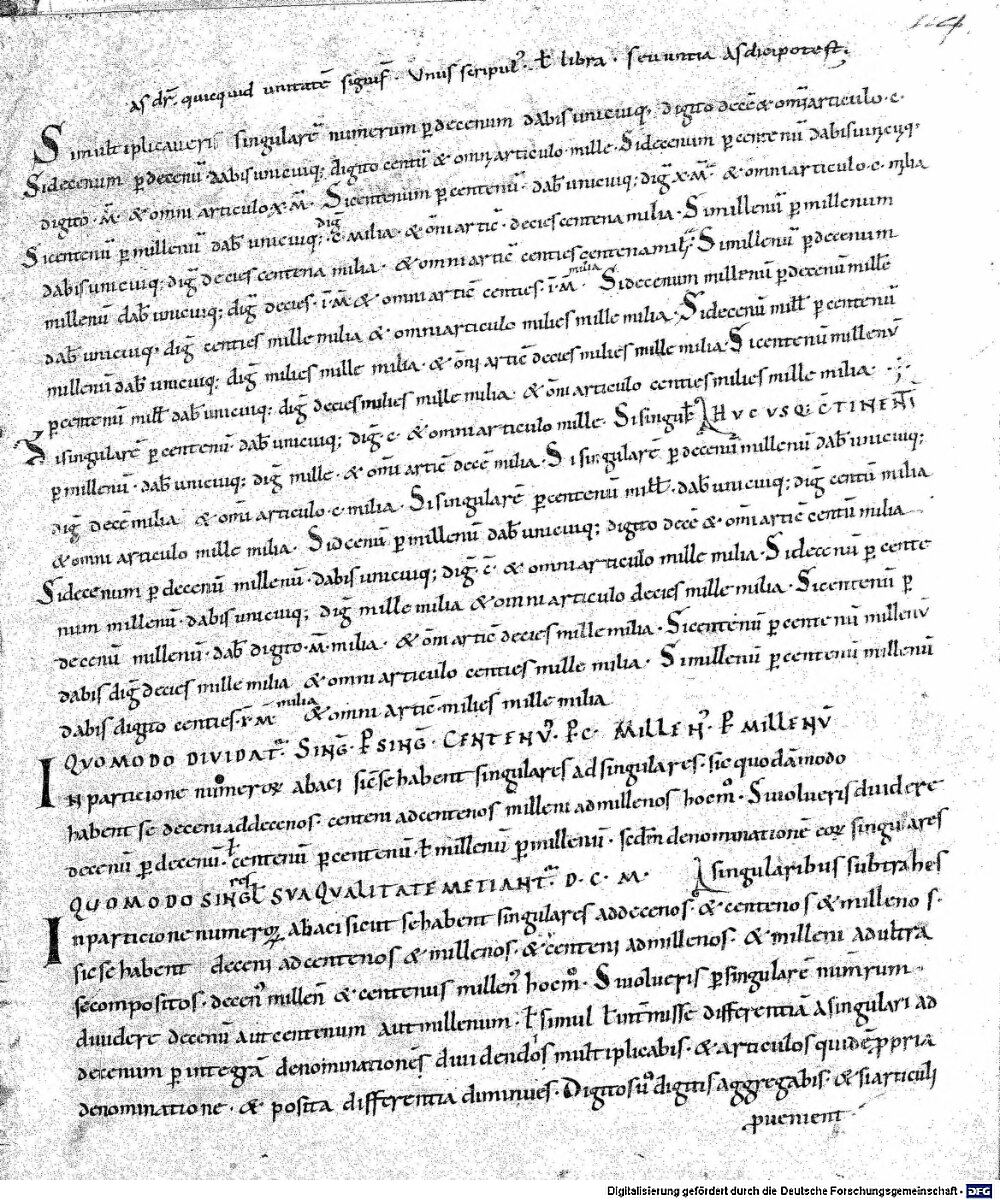 as dr̄ quicquid unitatē signif̄. Unus scripul'. ł libra. seu untia as dici potest.
Si multiplicaveris singularē numerum p decenum dabis unicuiq; digito decē & om̄i articulo . c .
Si decenum p decenū . dabis unicuiq; digito centū & omni articulo mille . Si decenum p centenū dabis unicuiq;
digito . M̄ . & omni articulo x . M̄ . Si centenum p centenū . dab̄ unicuiq; dig̅ x . M̄ . & omni articulo . c . milia
Si centenū p millenū dab̄ unicuiq; dig̅ c̄ milia . & om̄i artic̄ . decies centena milia . Si millenū p millenum
dabis unicuiq; dig̅ decies centena milia . & omni artic̄ centies centena mil̄ . Si millenū p decenum
millenū dab̄ unicuiq; dig̅ decies . ī . M̄ & omni artic̄ centies . ī . M̄ . milia Si decenum millenū p decenū mille
dab̄ unicuiq; dig̅ centies mille milia & omni articulo milies mille milia . Si decenū mill̄ p centenū
millenū dab̄ unicuiq; dig̅ milies mille milia . & om̄i artic̄ decies milies mille milia . Si centenū millenū
p centenū mill̄ dab̄ unicuiq; dig̅ decies milies mille milia & om̄i articulo centies milies mille milia . ;
Si singularē p centenū . dab̄ unicuiq; dig̅ c . & omni articulo mille . Si singul̄ HUCUSQ; C̄TINENT̄
p millenū . dab̄ unicuiq; dig̅ mille . & om̄i artic̄ decē milia . Si singularē p decenū millenū dab̄ unicuiq;
dig̅ decē milia & om̄i articulo . c . milia . Si singularē p centenū mill̄ . dab̄ unicuiq; dig̅ centū milia
& omni articulo mille milia . Si dcenū p millenū dab̄ unicuiq; digito decē & om̄i artic̄ centū milia
Si decenum p decenū millenū . dabis unicuiq; dig̅ c̄ & omni articulo mille milia . Si decenū p cente
num millenū . dabis unicuiq; dig̅ mille milia & omni articulo decies mille milia . Si centenū p
decenū millenū . dab̄ digito . M̄ . milia . & om̄i artic̄ decies mille milia . Si centenū p centenū millenū
dabis dig̅ decies mille milia & omni articulo centies mille milia . Si millenū p centenū millenū
dabis digito centies . ī M̄ milia & omni artic̄ milies mille milia
QUOMODO DIVIDAT' . SING̅ . P SING̅ . CENTENŪ . P C . MILLEN̄ . P MILLENŪ
In particione numeroꝝ abaci sic se habent singulares ad singulares . sic quodāmodo
habent se deceni ad decenos . centeni ad centenos milleni ad millenos hoc m̊ . Si volueris dividere
decenū p decenū . ł centenū p centenū . ł millenū p millenū . sed m̄ denominationē eoꝝ singulares
QUOMODO SINGL̄RES SUA QUALITATE METIANT' . D . C . M . A singularibus subtrahes
In particione numeroꝝ abaci sicut se habent singulares ad decenos . & centenos & millenos .
sic se habent deceni ad centenos & millenos . & centeni ad millenos . & milleni ad ultra
se compositos . decen̄ millen̄ & centenus millen̄ hoc m̊ . Si volueris p singularē num̄rum
dividere decenū aut centenum aut millenum . ł simul ł int̄misse differentiā a singulari ad
decenum p integrā denominationēs dividendos multiplicabis . & articulos quidē ppria
denominatione . & posita differentia diminues . Digitos ů digitis aggregabis . & si articuli
pvenient